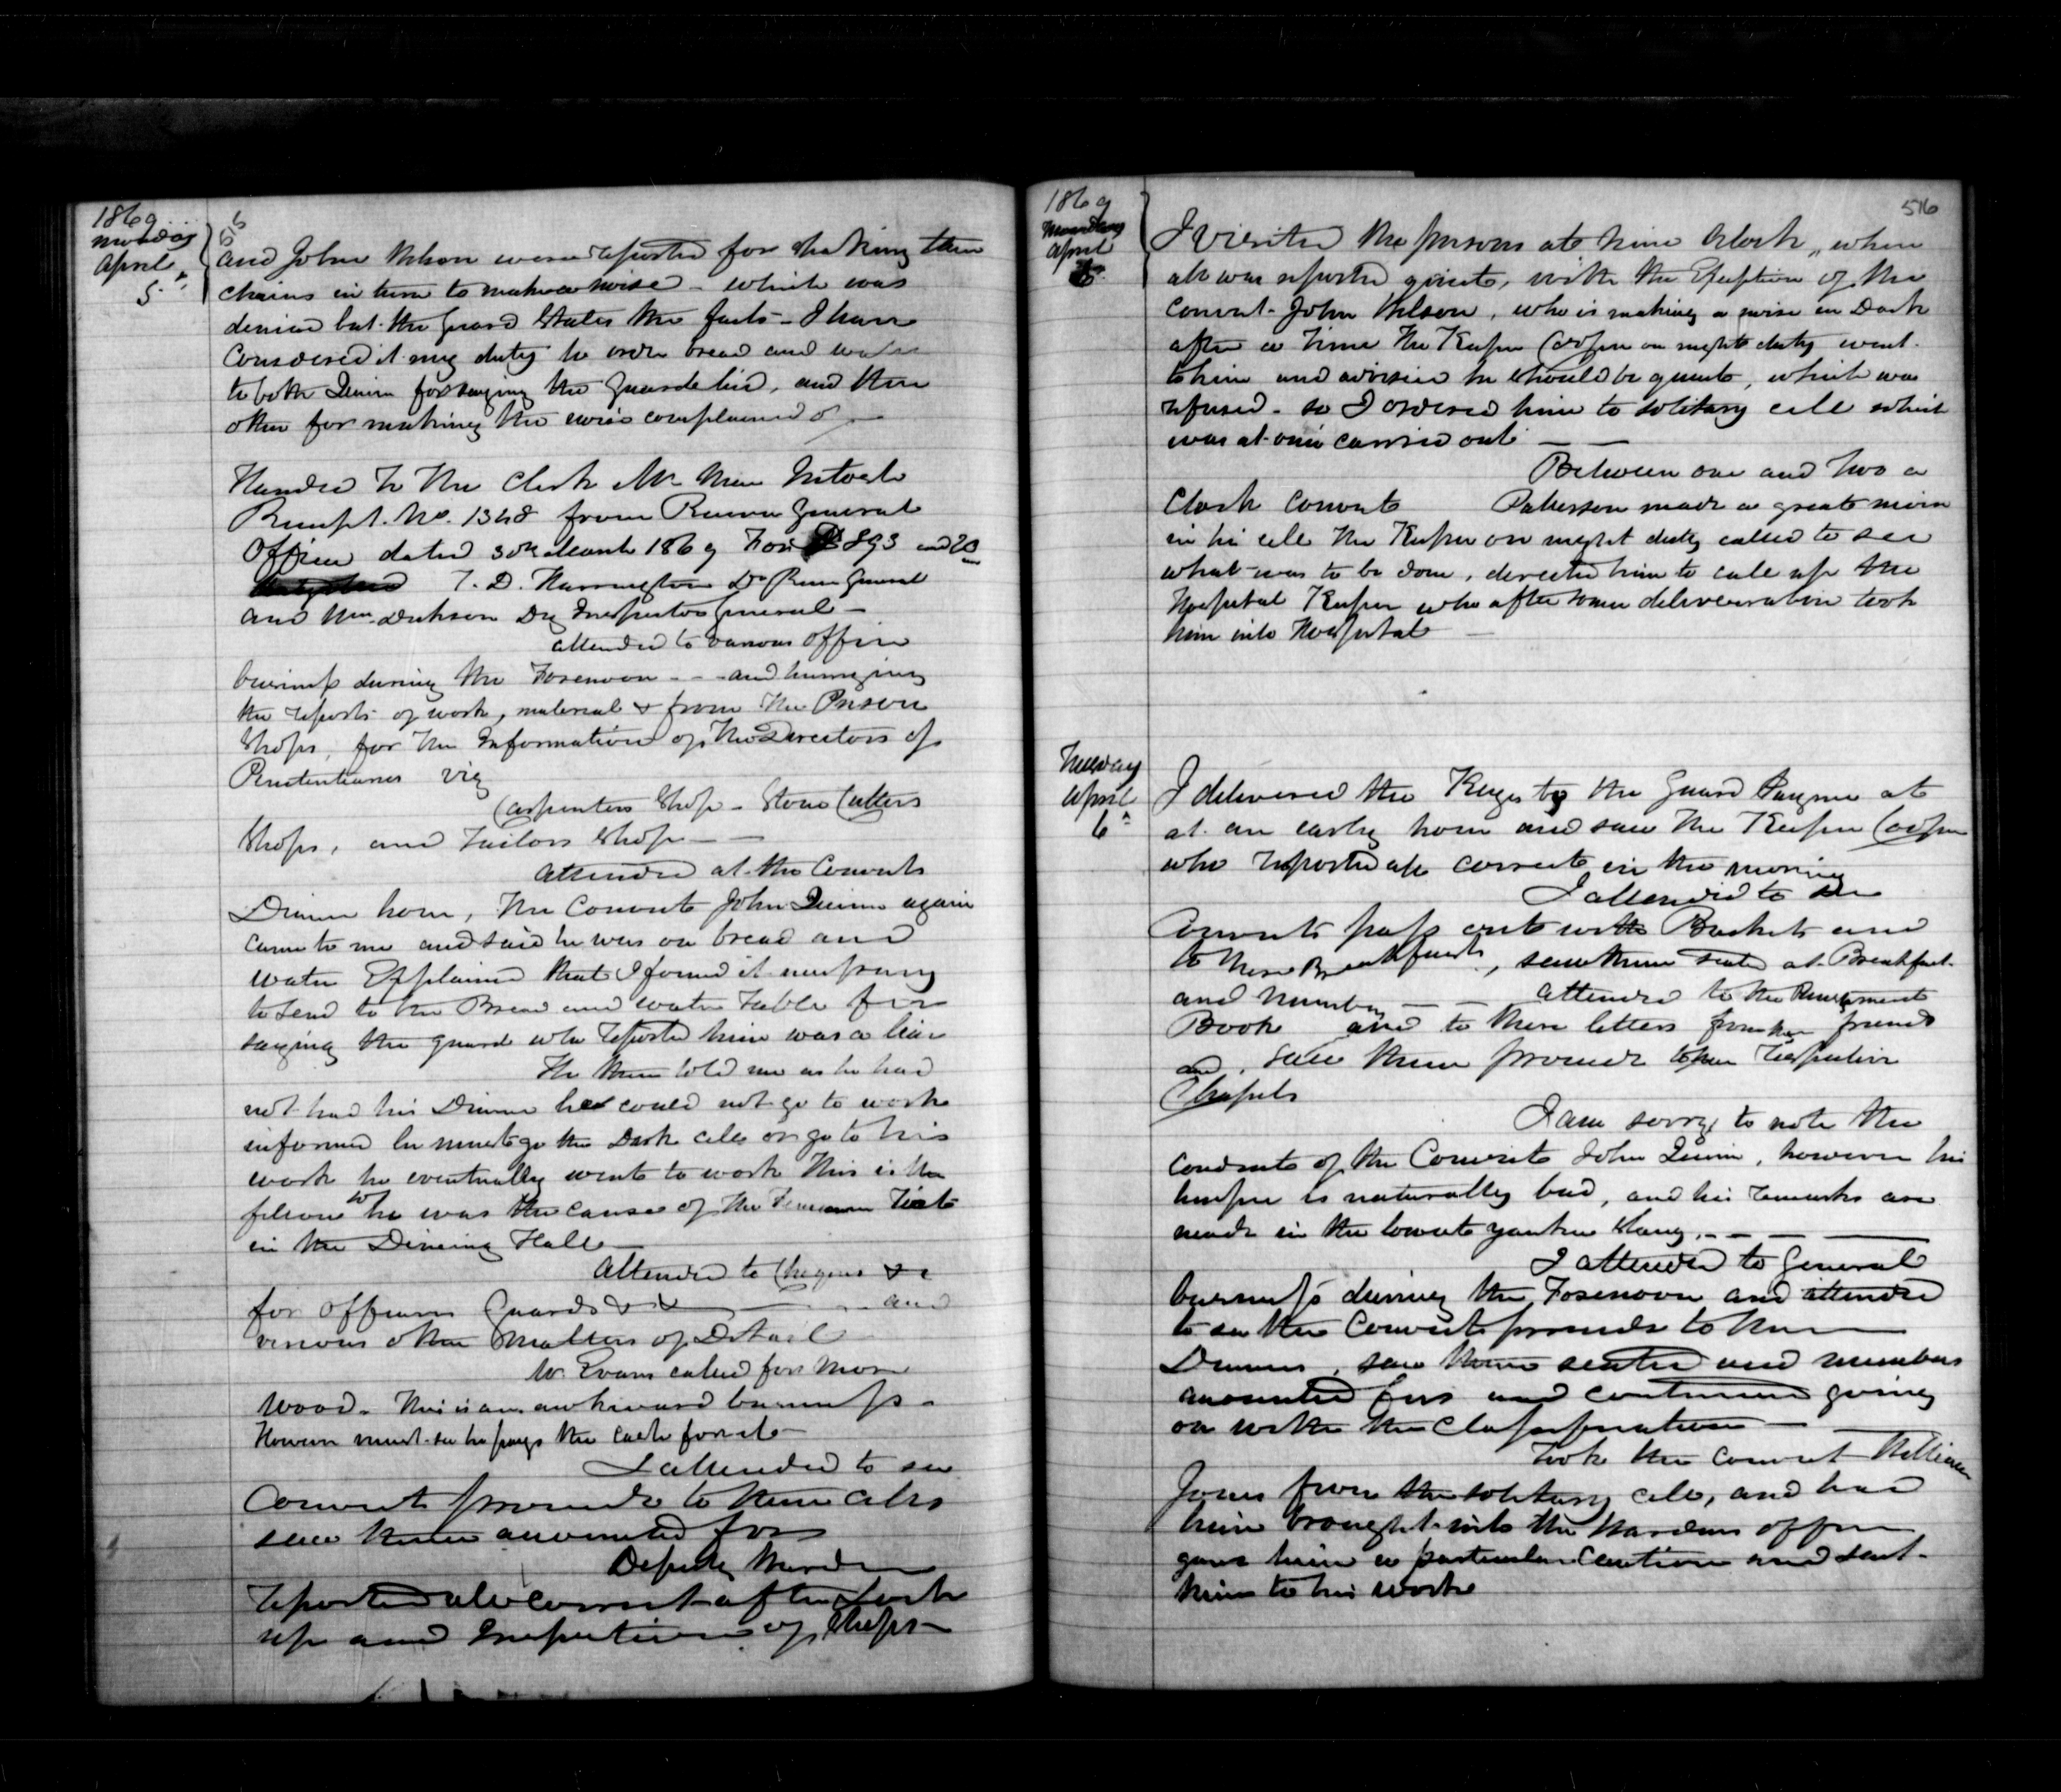 1869
Monday
April
5
and John Nelson were reported for shaking their
chains in turn to make a noise - which was
denied but the Guard States the facts - I have
Considered it my duty to order bread and water
to both Quinn for saying the Guard lied, and the
other for making the noise complained of -
Handed to the Clerk Mr
Receipt No. 1348 from Receiver General
Office dated 30th March 1869 For $ 893 and 20
T. D. Harrington Dy Receiver General
and Wm Dickson Dy Inspector General -
attended to various office
business during the Forenoon - - - and
the reports of work, material & from the Prison
Shops, for the Information of the Directors of
Penitentiaries viz
Carpenters Shop - Stone Cutters
Shops, and Tailors Shop -
Attended at the Convicts
Dinner hour, the Convict John Quinn again
came to me and said he was on bread and
water Explained that I found it necessary
to send to the Bread and water Table for
saying the guard who reported him was a liar
He then told me as he had
not had his Dinner he could not go to work
informed he must go the Dark cell or go to his
work he eventually went to work This is the
fellow who was the cause of the Riot
in the Dining Hall
Attended to Cheques &c
for Officers Guards &c and
various other Matters of Detail
Mr Evans called for more
Wood - This is an awkward business -
However must see he pays the cash for it -
I attended to see
Convicts proceed to their cells
saw them accounted for
Deputy Warden
reported all correct after Lock
up and Inspection of Shops -
1869
Monday
April
5
516
I visited the prisons at nine Oclock, when
all was reported quiet, with the Exception of the
Convict John Nelson, who is making a noise in Dark
after a time the Keeper Cooper on night duty went
to him and advised he should be quiet, which was
refused - so I ordered him to solitary cell which
was at once carried out -
Between one and two o
Clock Convict Patterson made a great noise
in his cell the Keeper on night duty called to see
what was to be done, directed him to call up the
Hospital Keeper who after some deliberation took
him into Hospital -
Tuesday
April
6
I delivered the Keys to the Guard at
at an early hour and saw the Keeper Cooper
who reported all correct in the morning
I attended to see
Convicts pass out with Buckets and
to there Breakfasts, saw them seated at Breakfast
and Number - - attended to the Punishment
Book and to there letters from friends
and saw them proceed to their respective
Chapels
I am sorry to note the
conduct of the Convict John Quinn, however his
temper is naturally bad, and his remarks are
made in the lowest yankee slang. - - -
I attended to General
business during the Forenoon and attended
to see the Convicts proceed to their
Dinners, saw them seated and numbers
accounted for and continued going
on with the Classification -
Took the Convict William
Jones from the solitary cell, and had
him brought into the Wardens office
gave him a particular caution and sent
him to his work